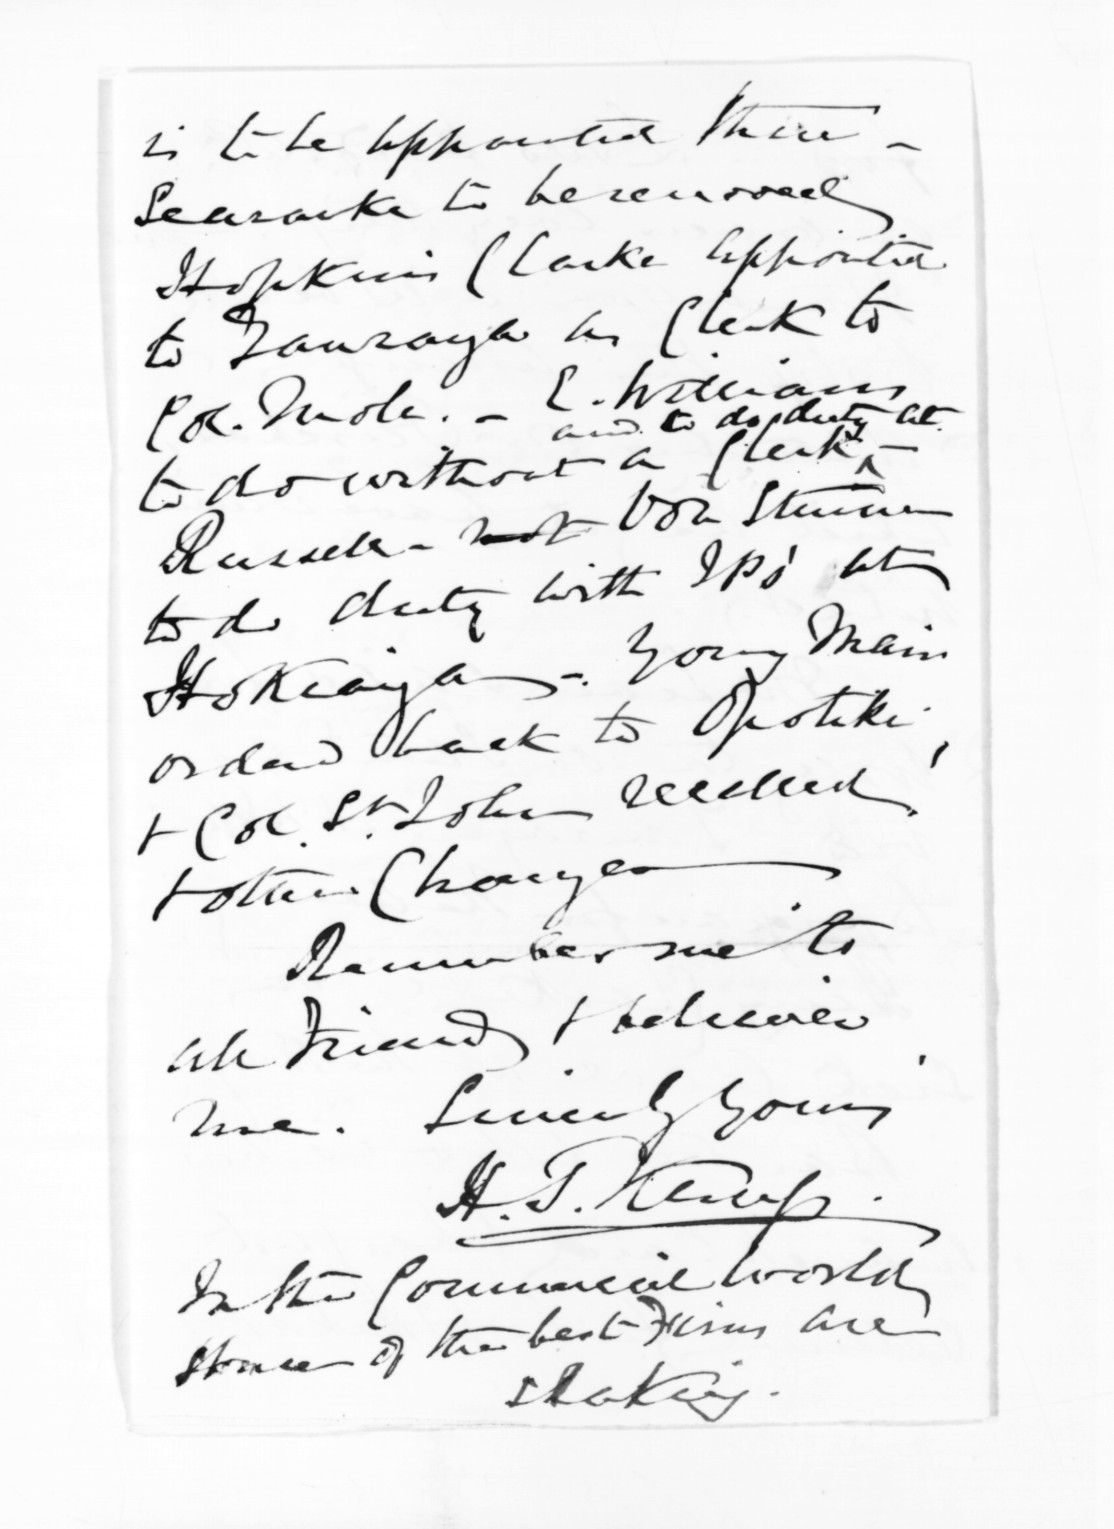 is to be appointed there -
Searancke to be removed
Hopkins Clarke appointed
to Tauranga as Clerk to
Col. Mole. - E. Williams
and to do duty at
to do without a Clerk -
Russell - not Von Sturmer
to do duty with JPs' at
Hokianga -. Young Mair
ordered back to Opotiki,
+ Col. St. John recalled,
+ other Changes
Remember me to
all Friends + believe
me. Sincerely yours
H. T. Kemp.
In the Commercial World
some of the best Firms are
shaking.